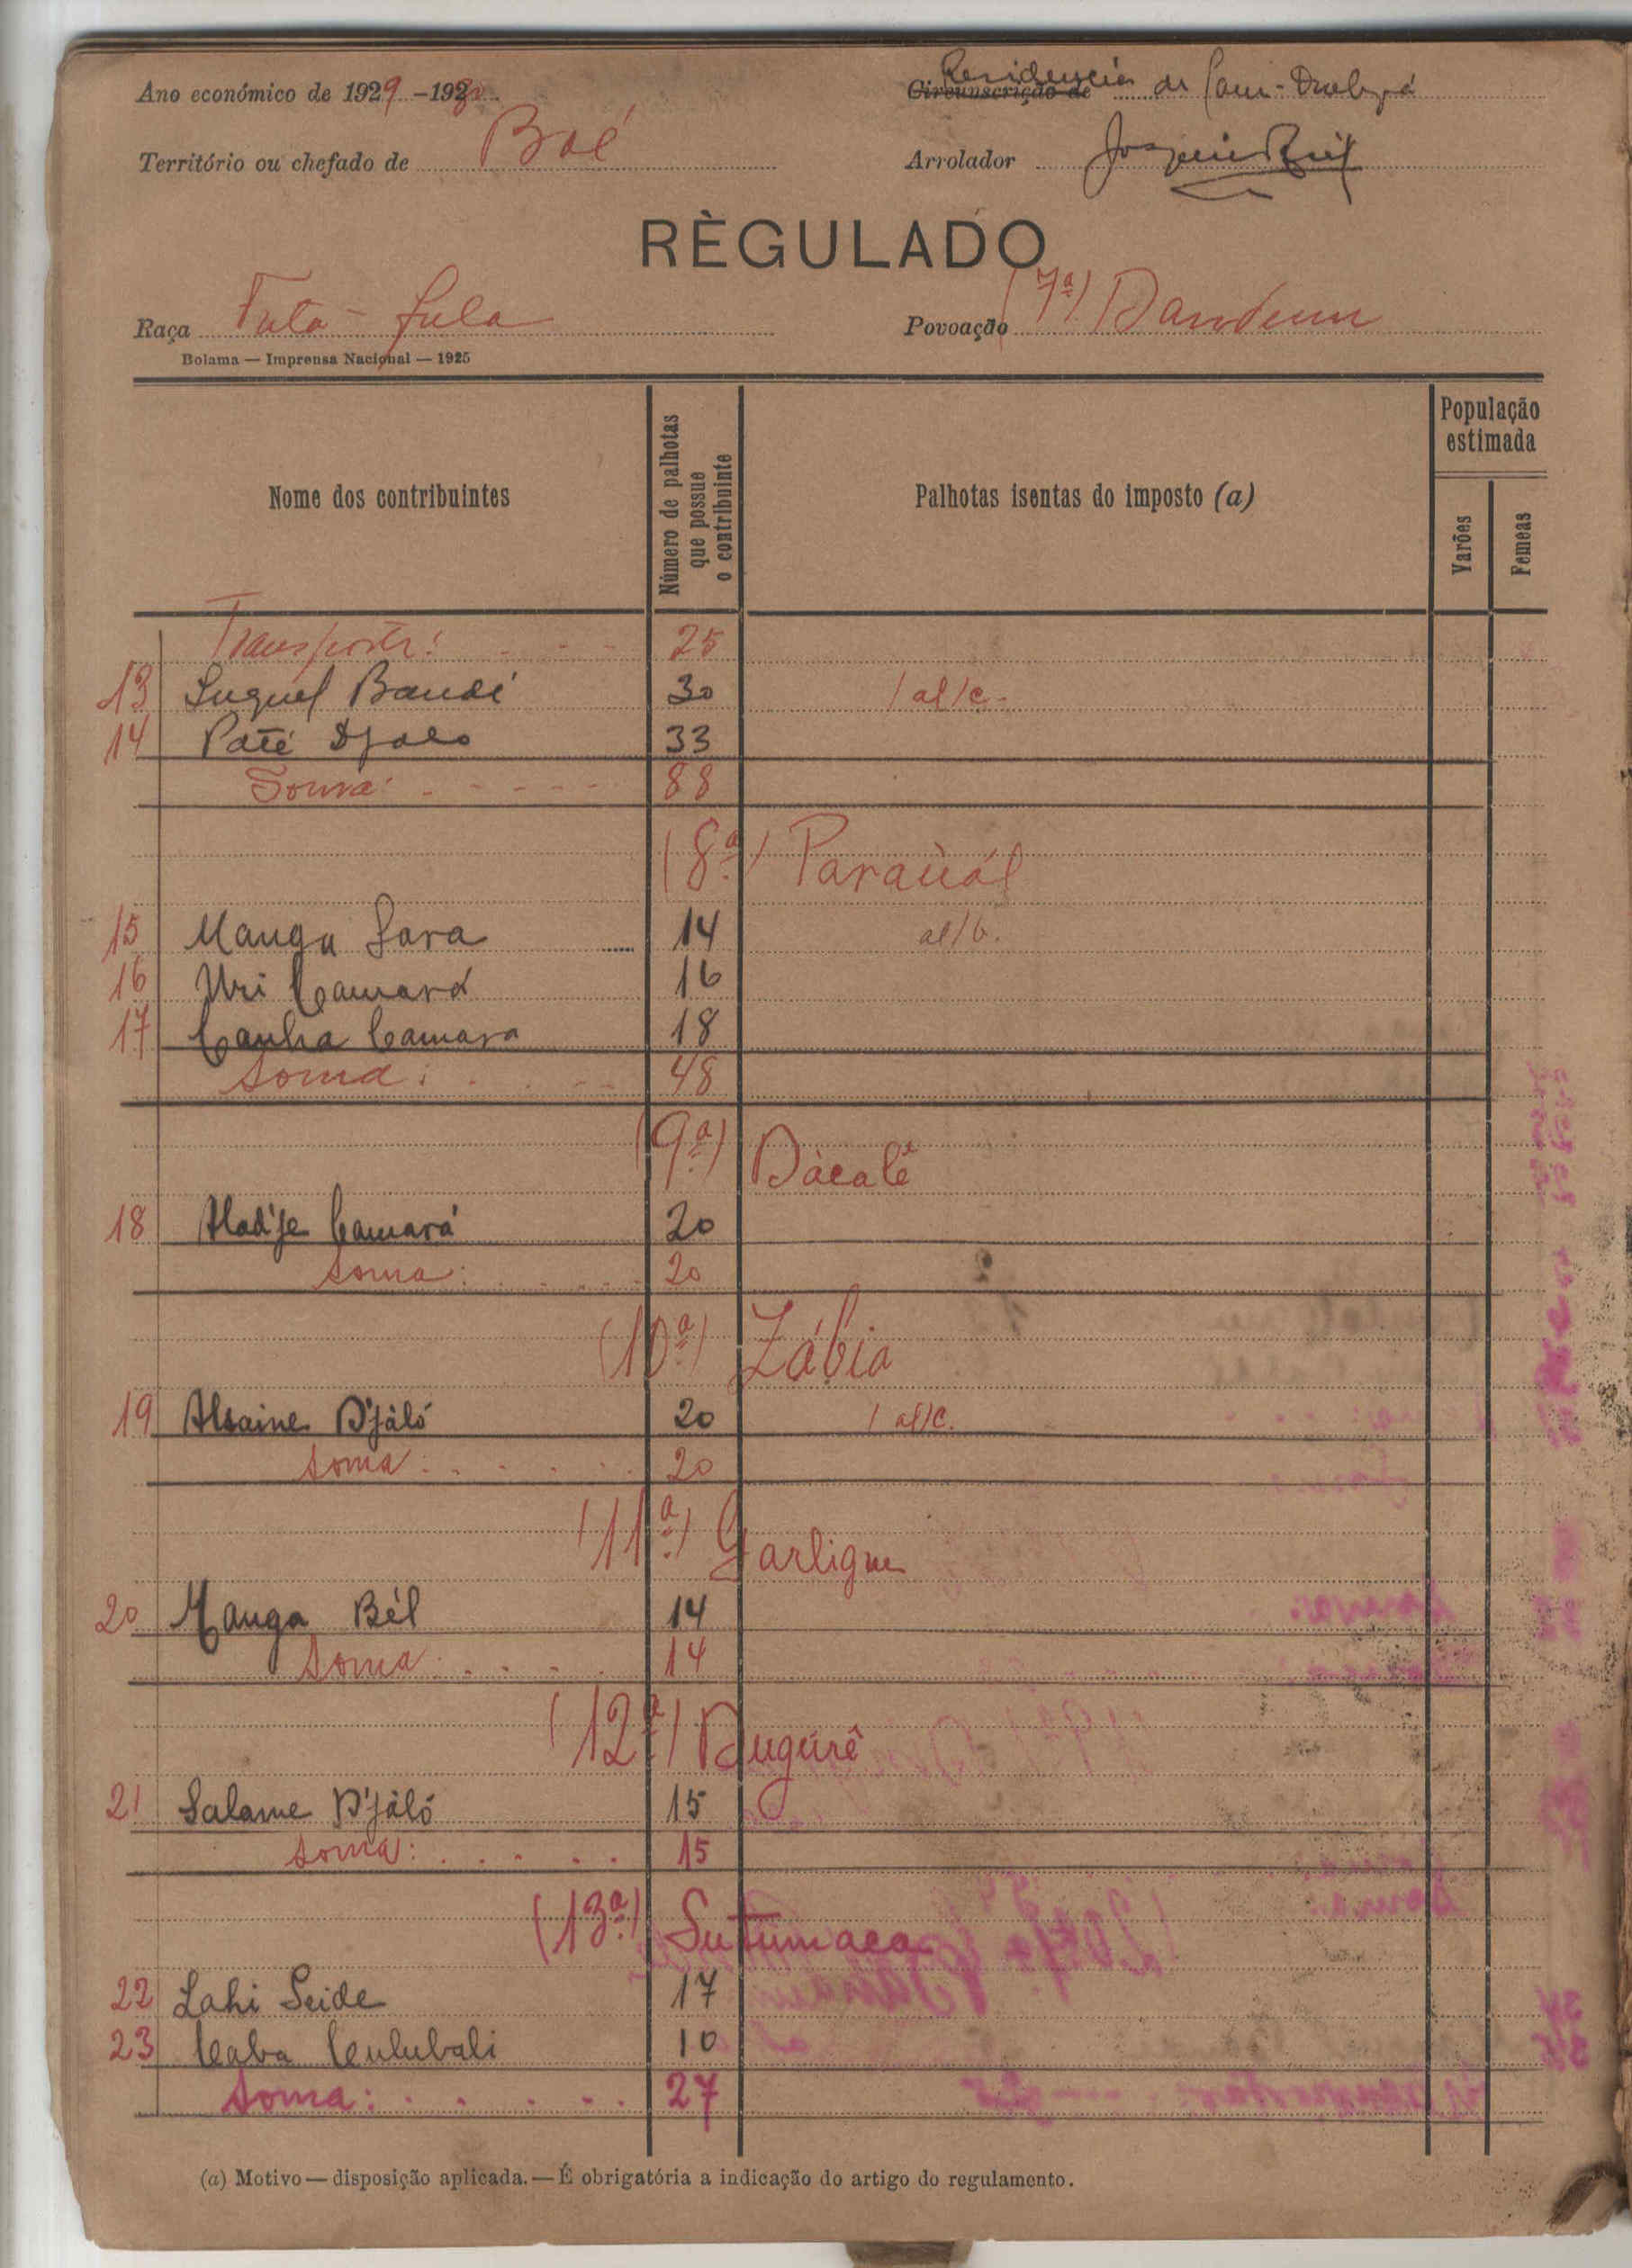 Ano económico de 1929-1930
Residencia de
Território ou chefado de Boé
Arrolador
RÈGULADO
Raça Futa-fula
Povoação (7ª) Dandum
Bolama — Imprensa Nacional — 1925
Nome dos contribuintes
Número de palhotas que possue o contribuinte
Palhotas isentas do imposto (a)
População estimada
Varões
Femeas
Transporte: 25
13 Suguel Baudé 30 1 al/c.
14 Paté Djaló 33
Soma: 88
(8ª) Paraùál
15 Manga Sara 14 al/b.
16 Uri Camará 16
17 Canha Camara 18
Soma: 48
(9ª) Dàcalê
18 Alad'je Camará 20
Soma: 20
(10ª) Lábia
19 Alsaine D'jàló 20 1 al/c.
Soma: 20
(11ª) Garligue
20 Manga Bél 14
Soma: 14
(12ª) Dugúrê
21 Salame D'jàló 15
Soma: 15
(13ª) Sutumaca
22 Lahi Seide 17
23 Caba Culubali 10
Soma: 27
(a) Motivo — disposição aplicada. — É obrigatória a indicação do artigo do regulamento.